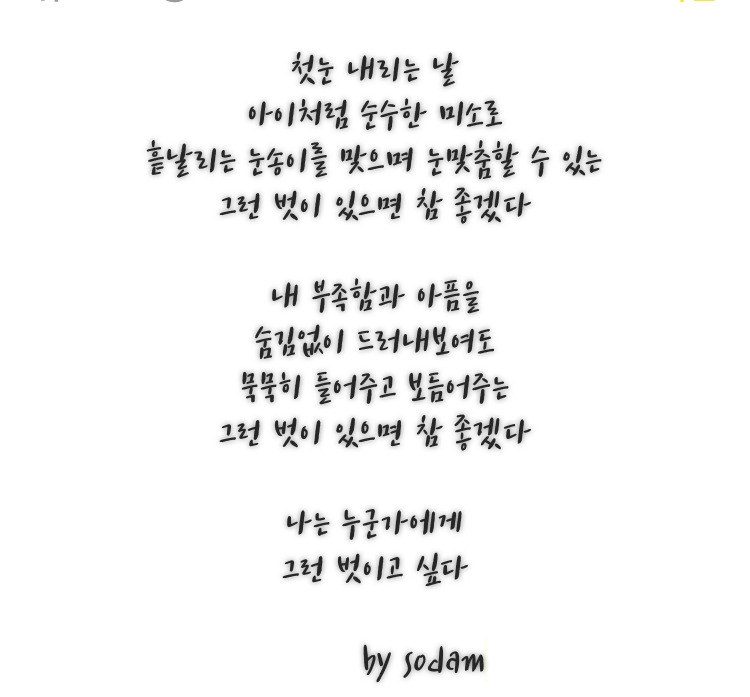 첫눈 내리는 날
아이처럼 순수한 미소로
흩날리는 눈송이를 맞으며 눈맞춤할 수 있는
그런 벗이 있으면 참 좋겠다
내 부족함과 아픔을
숨김없이 드러내보여도
묵묵히 들어주고 보듬어주는
그런 벗이 있으면 참 좋겠다
나는 누군가에게
그런 벗이고 싶다
by sodam